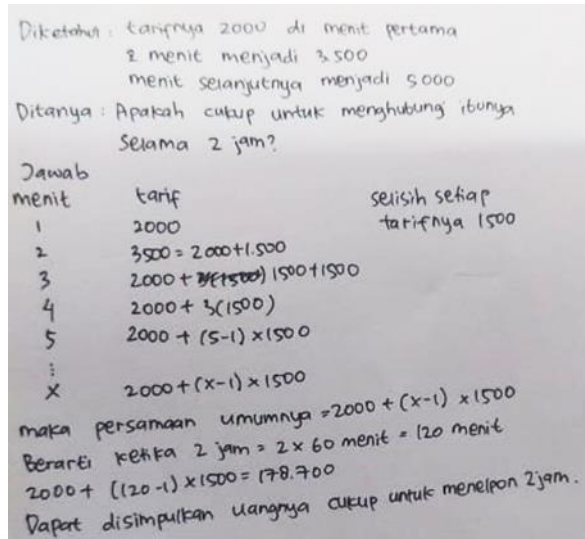 Diketahui : tarifnya 2000 di menit pertama
2 menit menjadi 3.500
menit selanjutnya menjadi 5000
Ditanya : Apakah cukup untuk menghubungi ibunya
Selama 2 jam?
Jawab
menit tarif selisih setiap
tarifnya 1500
1 2000
2 3500 = 2000+1.500
3 2000 + 1500+1500
4 2000 + 3(1500)
5 2000 + (5-1) x1500
⋮
x 2000+(x-1) x 1500
maka persamaan umumnya = 2000 + (x-1) x1500
Berarti ketika 2 jam = 2 x 60 menit = 120 menit
2000+ ((120-1) x1500 = 178.700
Dapat disimpulkan uangnya cukup untuk menelpon 2 jam.